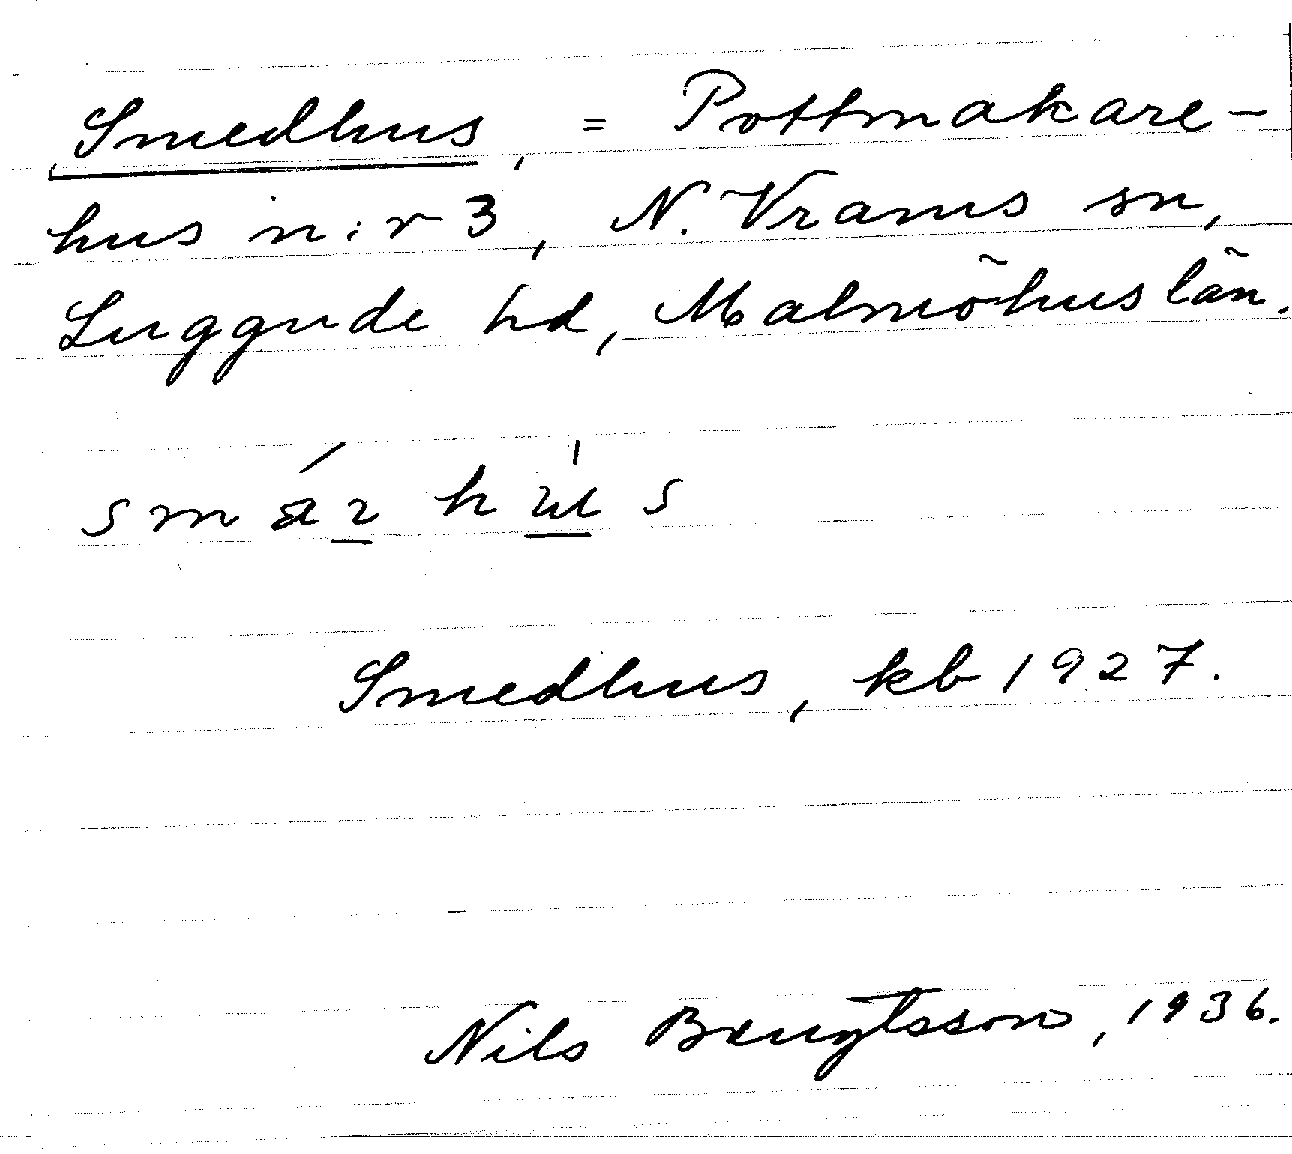 Smedhus, = Pottmakare-
hus n:r 3, N. Vrams sn,
Luggude hd, Malmöhus län.
Smedhus, kb 1927.
Nils Bengtsson, 1936.